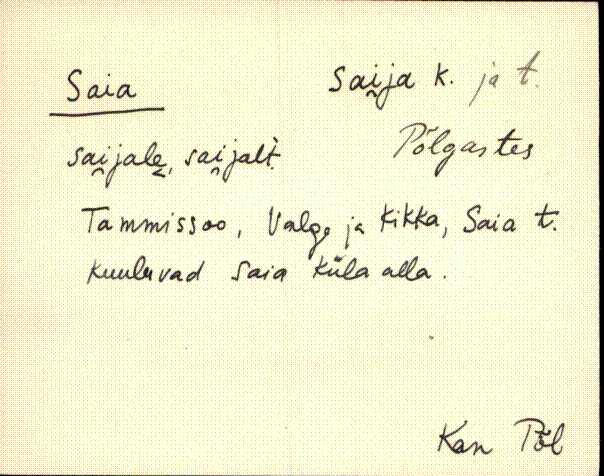 Saia
Sai̯ja k. ja t.
sai̯jale, sai̯jalt
Põlgastes
Tammissoo, Valge ja Kikka, Saia t.
kuuluvad Saia küla alla.
Kan Põl